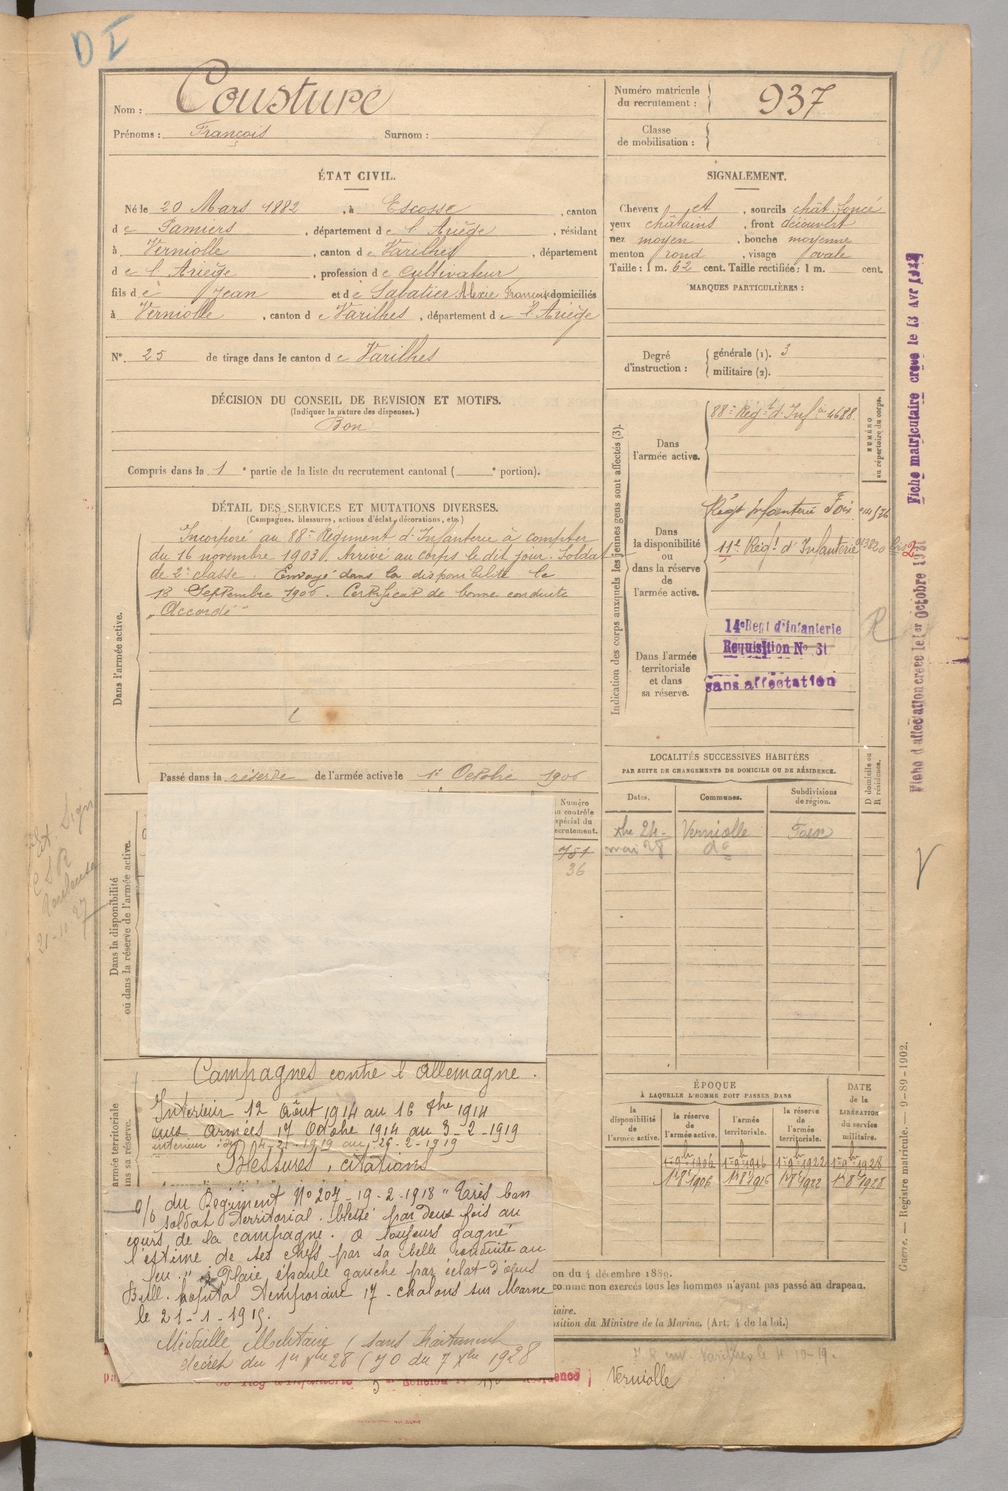 D I
Nom : Cousture
Prénoms : François Surnom :
Numéro matricule du recrutement : 937
Classe de mobilisation :
ÉTAT CIVIL.
Né le 20 Mars 1882, à Escosse, canton
d e Pamiers, département d e l'Ariège, résidant
à Verniolle, canton d e Varilhes, département
d e l'Ariège, profession de cultivateur
fils d e Jean et d e Sabatier Alexie Françoise domiciliés
à Verniolle, canton d e Varilhes, département d e l'Ariège
N° 25 de tirage dans le canton d e Varilhes
SIGNALEMENT.
Cheveux et, sourcils chât. foncé
yeux châtains, front découvert
nez moyen, bouche moyenne
menton rond, visage ovale
Taille : 1 m. 62 cent. Taille rectifiée : 1 m. cent.
MARQUES PARTICULIÈRES :
Degré d'instruction : générale (1). 3
militaire (2).
DÉCISION DU CONSEIL DE REVISION ET MOTIFS.
(Indiquer la nature des dispenses.)
Bon
Compris dans la 1e partie de la liste du recrutement cantonal ( e portion).
DÉTAIL DES SERVICES ET MUTATIONS DIVERSES.
(Campagnes, blessures, actions d'éclat, décorations, etc.)
Dans l'armée active.
Incorporé au 88e Régiment d'Infanterie à compter
du 16 novembre 1903. Arrivé au corps le dit jour. Soldat
de 2e classe. Envoyé dans la disponibilité le
18 Septembre 1906. Certificat de bonne conduite
"Accordé"
Passé dans la réserve de l'armée active le 1er Octobre 1906
Indication des corps auxquels les jeunes gens sont affectés (3).
NUMÉRO au répertoire du corps.
Dans l'armée active.
88e Régt d'Infie 4688
Dans la disponibilité ou dans la réserve de l'armée active.
Régt infanterie Foix
11e Régt d'Infanterie
Dans l'armée territoriale et dans sa réserve.
14e Regt d'Infanterie
Requisition N° 31
sans affectation
Fiche matriculaire créée le 13 Avr
Fiche d'affectation créée le 1er Octobre 1931
LOCALITÉS SUCCESSIVES HABITÉES
PAR SUITE DE CHANGEMENTS DE DOMICILE OU DE RÉSIDENCE.
Dates. Communes. Subdivisions de région. D domicile ou R résidence.
Xbre 24 Verniolle Foix
mai 28 do
Numéro au contrôle spécial du recrutement.
751
36
Dans la disponibilité ou dans la réserve de l'armée active.
21-11-27
Campagnes contre l'Allemagne.
Intérieur 12 Août 1914 au 16 8bre 1914
aux armées 17 Octobre 1914 au 3-2-1919
Blessures, citations
armée territoriale
sa réserve.
o/o du Régiment N° 207-19-2-1918 "Très bon
soldat territorial. blessé par deux fois au
cours de la campagne. a toujours gagné
l'estime de ses chefs par sa belle conduite au
feu." Plaie, épaule gauche par éclat d'obus
hôpital temporaire 17 - chalons sur Marne
le 21-1-1915.
Médaille Militaire (sans traitement
décret du 1er Xbre 28 (JO du 7 Xbre 1928
ÉPOQUE
À LAQUELLE L'HOMME DOIT PASSER DANS
la disponibilité de l'armée active.
la réserve de l'armée active.
l'armée territoriale.
la réserve de l'armée territoriale.
DATE de la LIBÉRATION du service militaire.
1er 9bre 1906 1er 9bre 1916 1er 9bre 1922 1er 9bre 1928
1er 8bre 1906 1er 8bre 1916 1er 8bre 1922 1er 8bre 1928
on du 4 décembre 1889.
comme non exercés tous les hommes n'ayant pas passé au drapeau.
iaire.
osition du Ministre de la Marine. (Art. 4 de la loi.)
Verniolle
Guerre. — Registre matricule. — 9-89-1902.